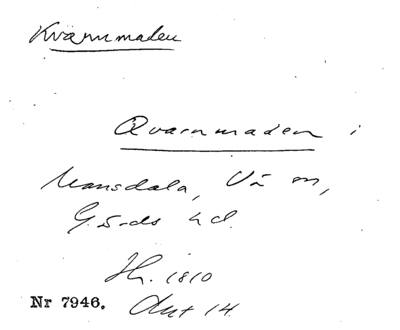 Kvarnmaden
Qvarnmaden i
Mansdala, Vå sn,
Gärds hd.
Hr. 1810
Nr 7946. Akt 14